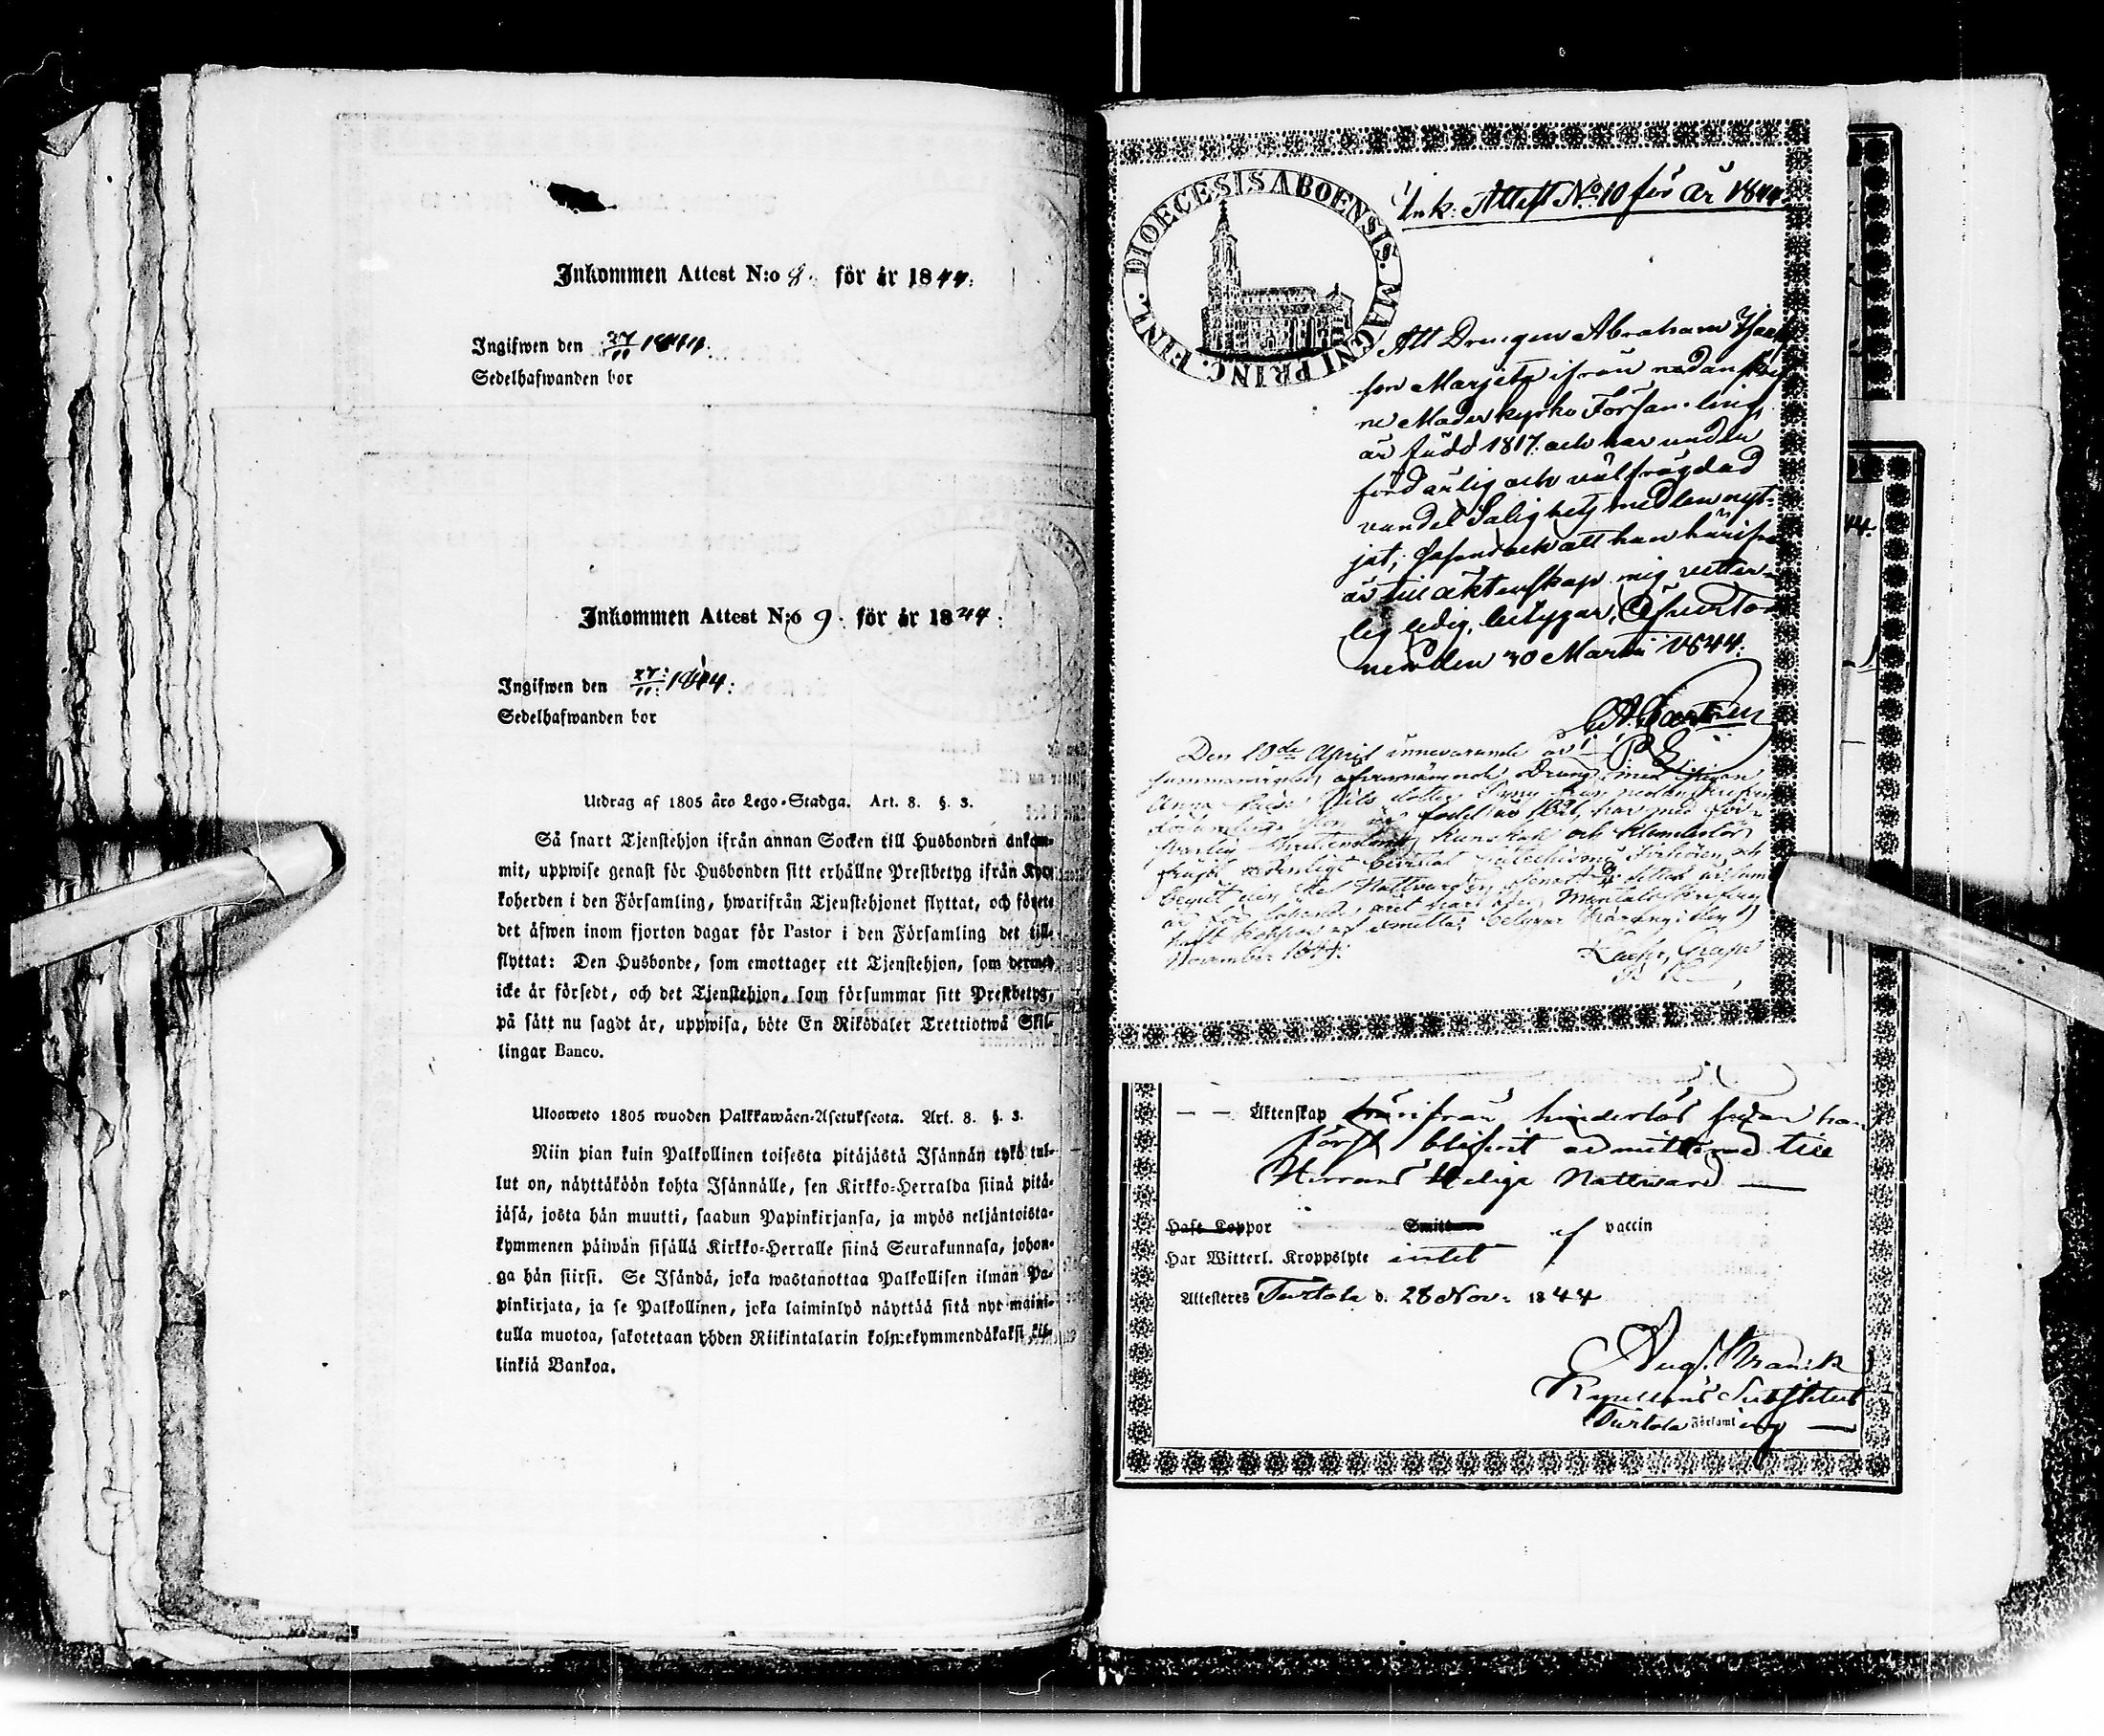 Inkommen Attest N:o 8. för år 1844.
Ingifwen den 27/11 1844.
Sedelhafwanden bor
Inkommen Attest N:o 9. för år 1844.
Ingifwen den 27/11 1844.
Sedelhafwanden bor
Utdrag af 1805 års Lego-Stadga. Art. 8. §. 3.
Så snart Tjenstehjon ifrån annan Socken till Husbonden ankom-
mit, uppwise genast för Husbonden sitt erhållne Prestbetyg ifrån Kyr-
koherden i den Församling, hwarifrån Tjenstehjonet flyttat, och förete
det äfwen inom fjorton dagar för Pastor i den Församling det till-
flyttat: Den Husbonde, som emottager ett Tjenstehjon, som dermed
icke är försedt, och det Tjenstehjon, som försummar sitt Prestbetyg,
på sätt nu sagdt är, uppwisa, böte En Riksdaler Trettiotwå Skil-
lingar Banco.
Ulosweto 1805 wuoden Palkkawäen-Asetuksesta. Art. 8. §. 3.
Niin pian kuin Palkollinen toisesta pitäjästä Isännän tykö tul-
lut on, näyttäköön kohta Isännälle, sen Kirkko-Herralda siinä pitä-
jäsä, josta hän muutti, saadun Papinkirjansa, ja myös neljäntoista-
kymmenen päiwän sisällä Kirkko-Herralle siinä Seurakunnasa, johon-
ga hän siirsi. Se Isändä, joka wastanottaa Palkollisen ilman Pa-
pinkirjata, ja se Palkollinen, joka laiminlyö näyttää sitä nyt maini-
tulla muotoa, sakotetaan yhden Riikintalarin kolmekymmendäkaksi kil-
linkiä Bankoa.
DIOECESIS ABOENSIS. MAGNI PRINC. FINL.
Ink: Attest No 10 för År 1844
Att Drengen Abraham Isaks
son Marjeta ifrån nedanskrif
ne Moderkyrko Församling,
är född 1817. och har under
förd ärlig och välfrägdad
vandel Salighets medlen nyt-
jat; sasom ock att han härifrån
är till äktenskap mig vetter-
lig ledig, betygar, Öfvertor
neå den 30 Martii 1844.
Den 10de April innevarande år
sammanvigdes ofvannämnde Dreng med Pigan
Anna
född år 1821, har med för-
Christendoms kunskap och klanderlös
frägd
begått den Hel. Nattvarden,
November 1844:
– – Äktenskap härifrån hinderlös sedan han
först blifvit admitterad till
Herrans Helige Nattvard —
Haft Koppor Smitt af vaccin
Har Witterl. Kroppslyte intet
Attesteres Turtola d. 28 Nov. 1844
Aug.
Kapellans Substitut
Turtola Församling —
44.